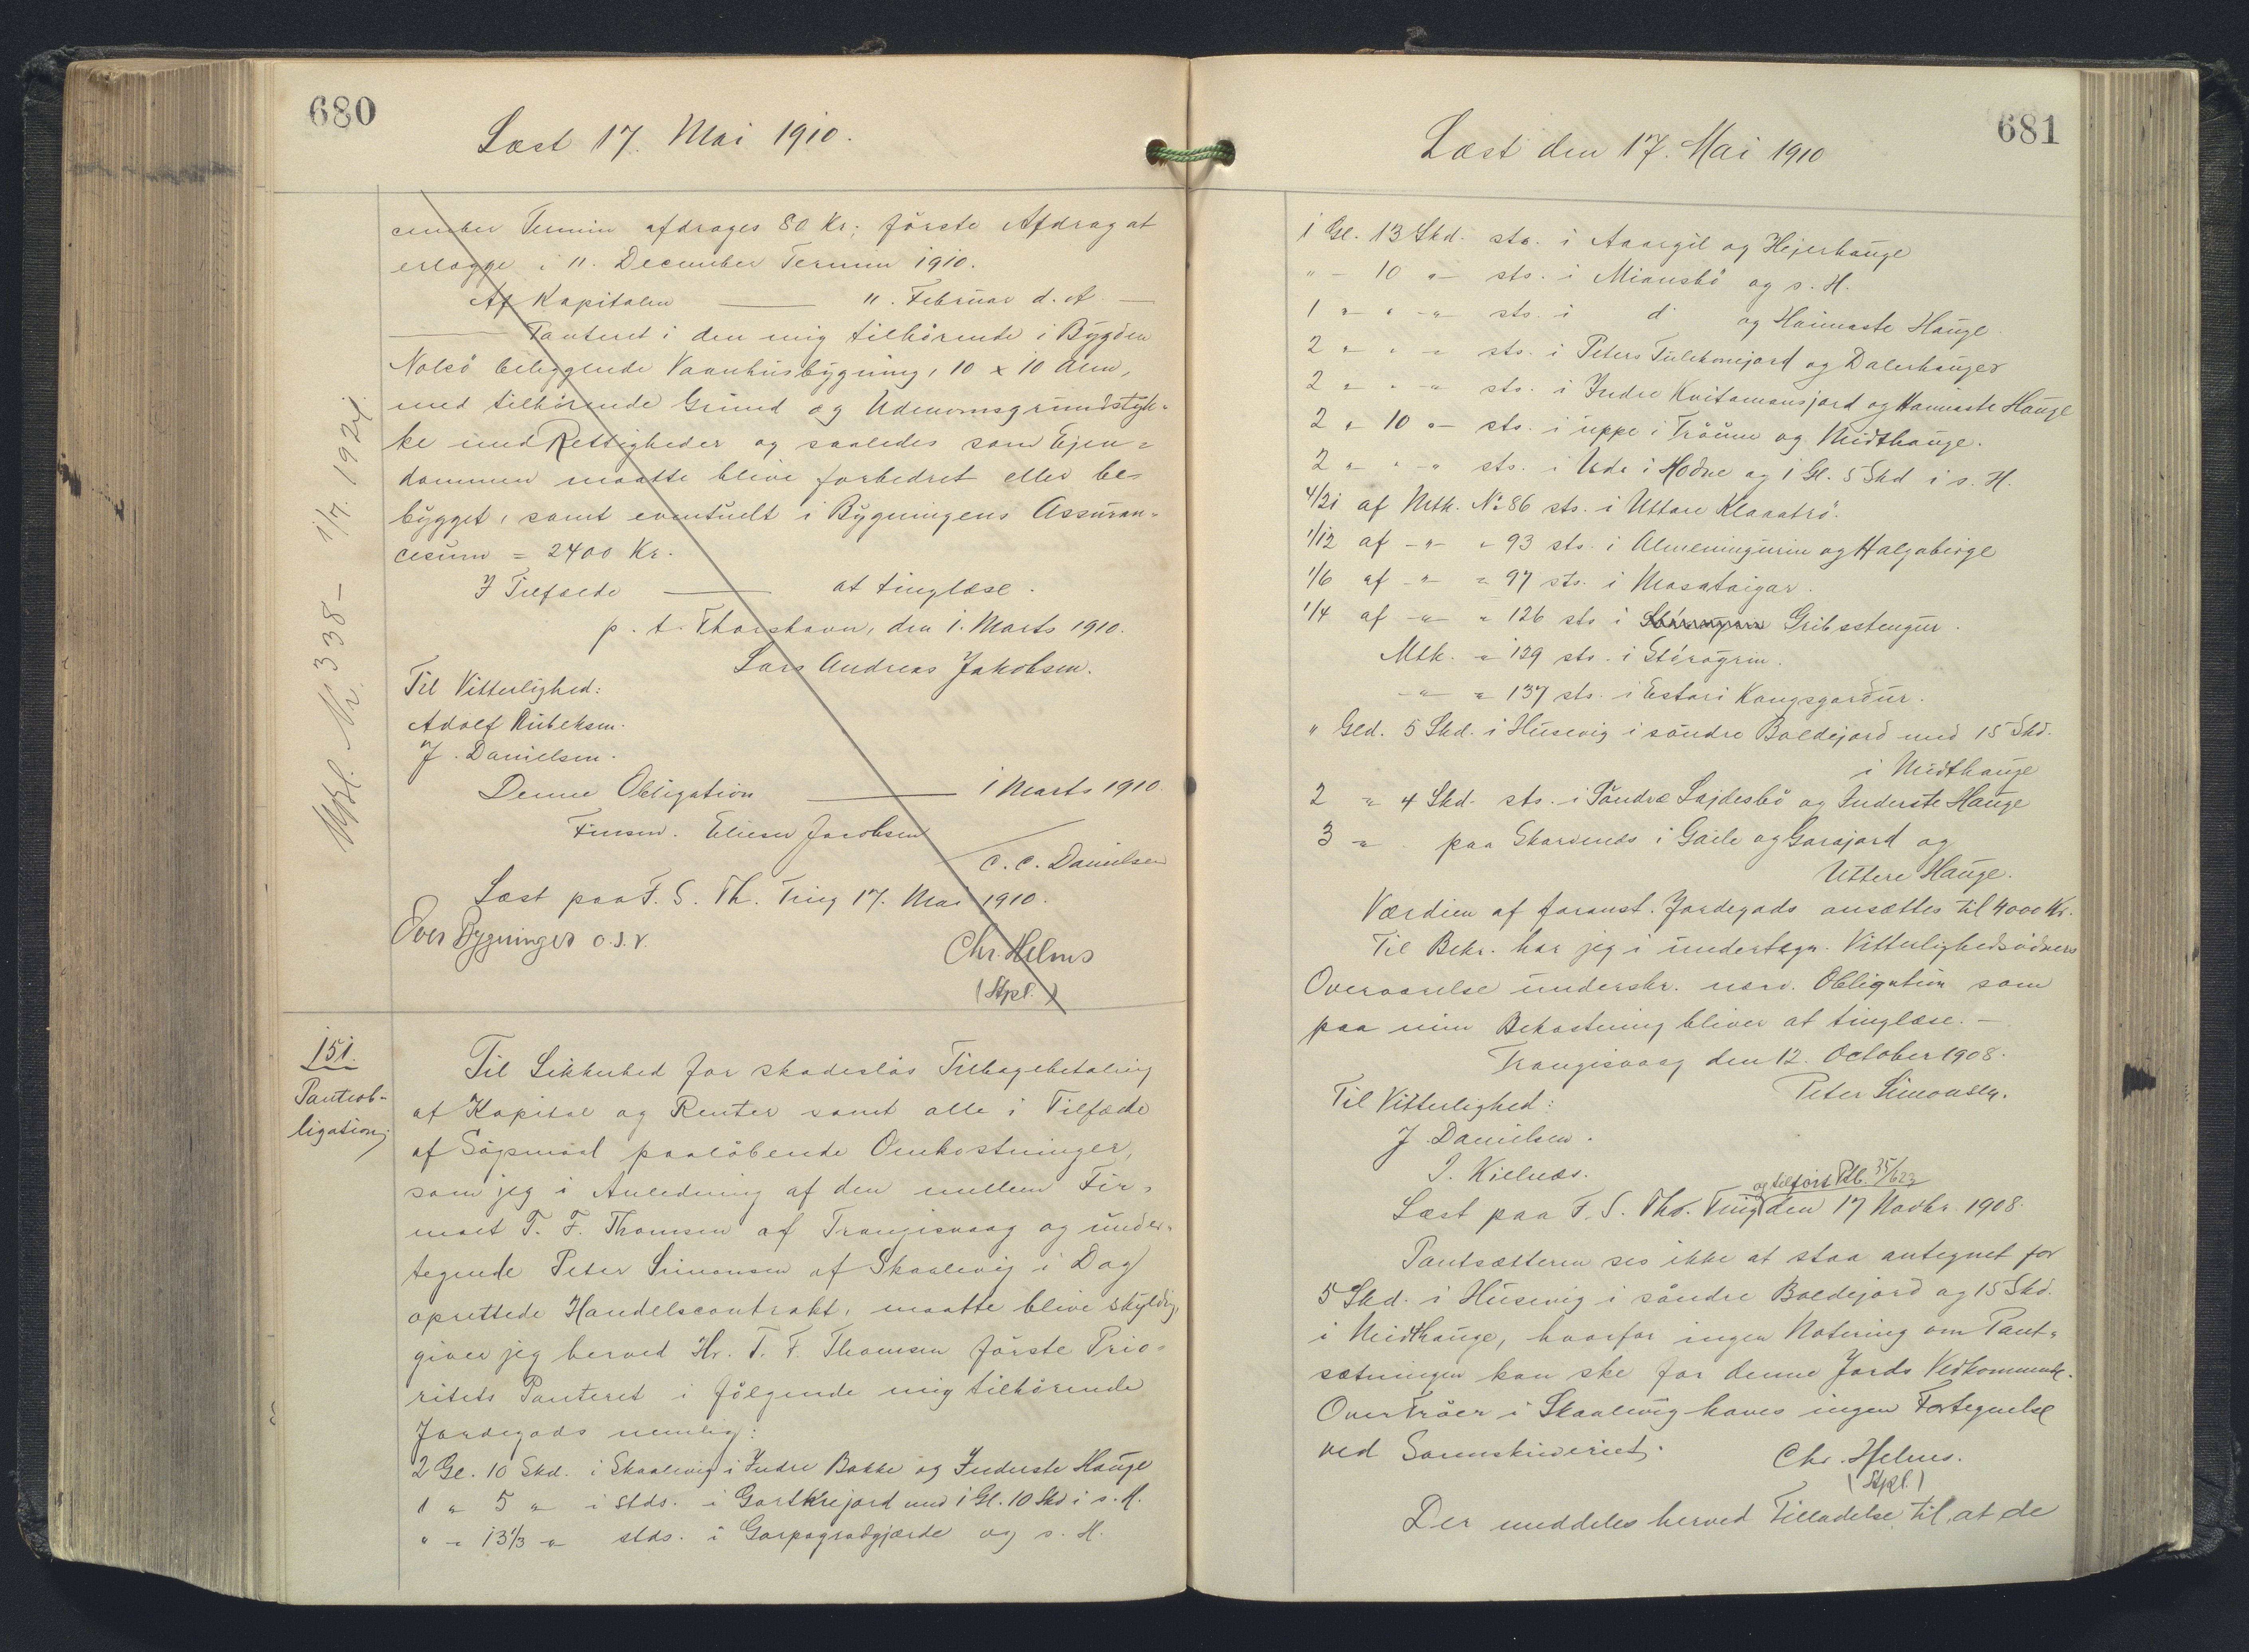 680
Læst 17. Mai 1910.
cember Termin afdrages 80 Kr; første Afdrag at
erlægge i 11. December Termin 1910.
Af Kapitalen ——— 11. Februar d. A. —
——— Panteret i den mig tilhørende i Bygden
Nolsø beliggende Vaanhusbygning, 10 x 10 Alen,
med tilhørende Grund og Udenomsgrundstyk-
ke med Rettigheder og saaledes som Ejen-
dommen maatte blive forbedret eller be-
bygget, samt eventuelt i Bygningens Assuran-
cesum = 2400 Kr.
I Tilfælde ——— at tinglæse.
p. t. Thorshavn, den 1. Marts 1910.
Lars Andreas Jakobsen.
Til Vitterlighed:
Adolf
J. Danielsen.
Denne Obligation ——— 1 Marts 1910.
Finsen. Elieser Jacobsen
C. C. Danielsen
Læst paa F. S. Th. Ting 17. Mai 1910.
Over Bygninger o. s. v.
Chr. Helms
(Stpl.)
Nr. 338 – 1/7. 1921.
151.
Pantob-
ligation;
Til Sikkerhed for skadesløs Tilbagebetaling
af Kapital og Renter samt alle i Tilfælde
af Søgsmaal paaløbende Omkostninger,
som jeg i Anledning af den mellem Fir-
maet T. F. Thomsen af Trangisvaag og under-
tegnede Peter Simonsen af Skaalevig i Dag
oprettede Handelscontrakt, maatte blive skyldig,
giver jeg herved Hr. T. F. Thomsen første Prio-
ritets Panteret i følgende mig tilhørende
Jordegods nemlig:
2 Gl. 10 Skd. i Skaalevig i Indre Bakke og Inderste Hauge
1 " 5 " i stds. i Gartkrejord med 1 Gl. 10 Skd i s. H.
" - 13 1/3 " stds. i Garpagradgjærde og s. H.
681
Læst den 17. Mai 1910
1 Gl. 13 Skd. sts. i Aargil og Hejerhauge
" - 10 " - sts. i Miansbø og s. H.
1 " " " sts. i d. og Hannaste Hauge.
2 " " " sts. i Peters Tulekonejord og Dalerhauger
2 " " " sts. i Indre Kvitamansjord og Hannaste Hauge
2 " 10 " sts. i uppe i Trøum og Midthauge.
2 " " " sts. i Uda i Hodne og 1 Gl. 5 Skd i s. H.
4/21 af Mtk. No 86 sts. i Uttare Klaaatrø.
1/12 af - " - " 93 sts. i Almeningurin og Halgabirge
1/6 af - " - " 97 sts. i Mosateigar.
1/4 af - " - " 126 sts i Gribsstengur.
Mtk. " 129 sts. i Størøgrin.
- " - " 137 sts. i Estari Kongsgardur.
" Gld. 5 Skd. i Husevig i søndre Boldejord med 15 Skd.
i Midthauge
2 " 4 Skd. sts. i Søndre Lajdesbø og Inderste Hauge
3 " paa Skarvenæs i Gaile og Garajord og
Uttere Hauge.
Værdien af foranst. Jordegods ansættes til 4000 Kr.
Til Bekr. har jeg i undertegn. Vitterlighedsvidners
Overværelse underskr. nærv. Obligation som
paa min Bekostning bliver at tinglæse. –
Trangisvaag den 12. October 1908.
Peter Simonsen.
Til Vitterlighed:
J. Danielsen.
I. Kielnæs.
og tilført Ptb. 35/623
Læst paa F. S. Tho. Ting den 17 Novbr. 1908.
Pantsætteren ses ikke at staa antegnet for
5 Skd. i Husevig i søndre Boldejord og 15 Skd.
i Midthauge, hvorfor ingen Notering om Pant-
sætningen kan ske for denne Jords Vedkommende.
Over Trøer i Skaalevig haves ingen Fortegnelse
ved Sorenskriveriet.
Chr. Helms.
(Stpl.)
Der meddeles herved Tilladelse til, at de